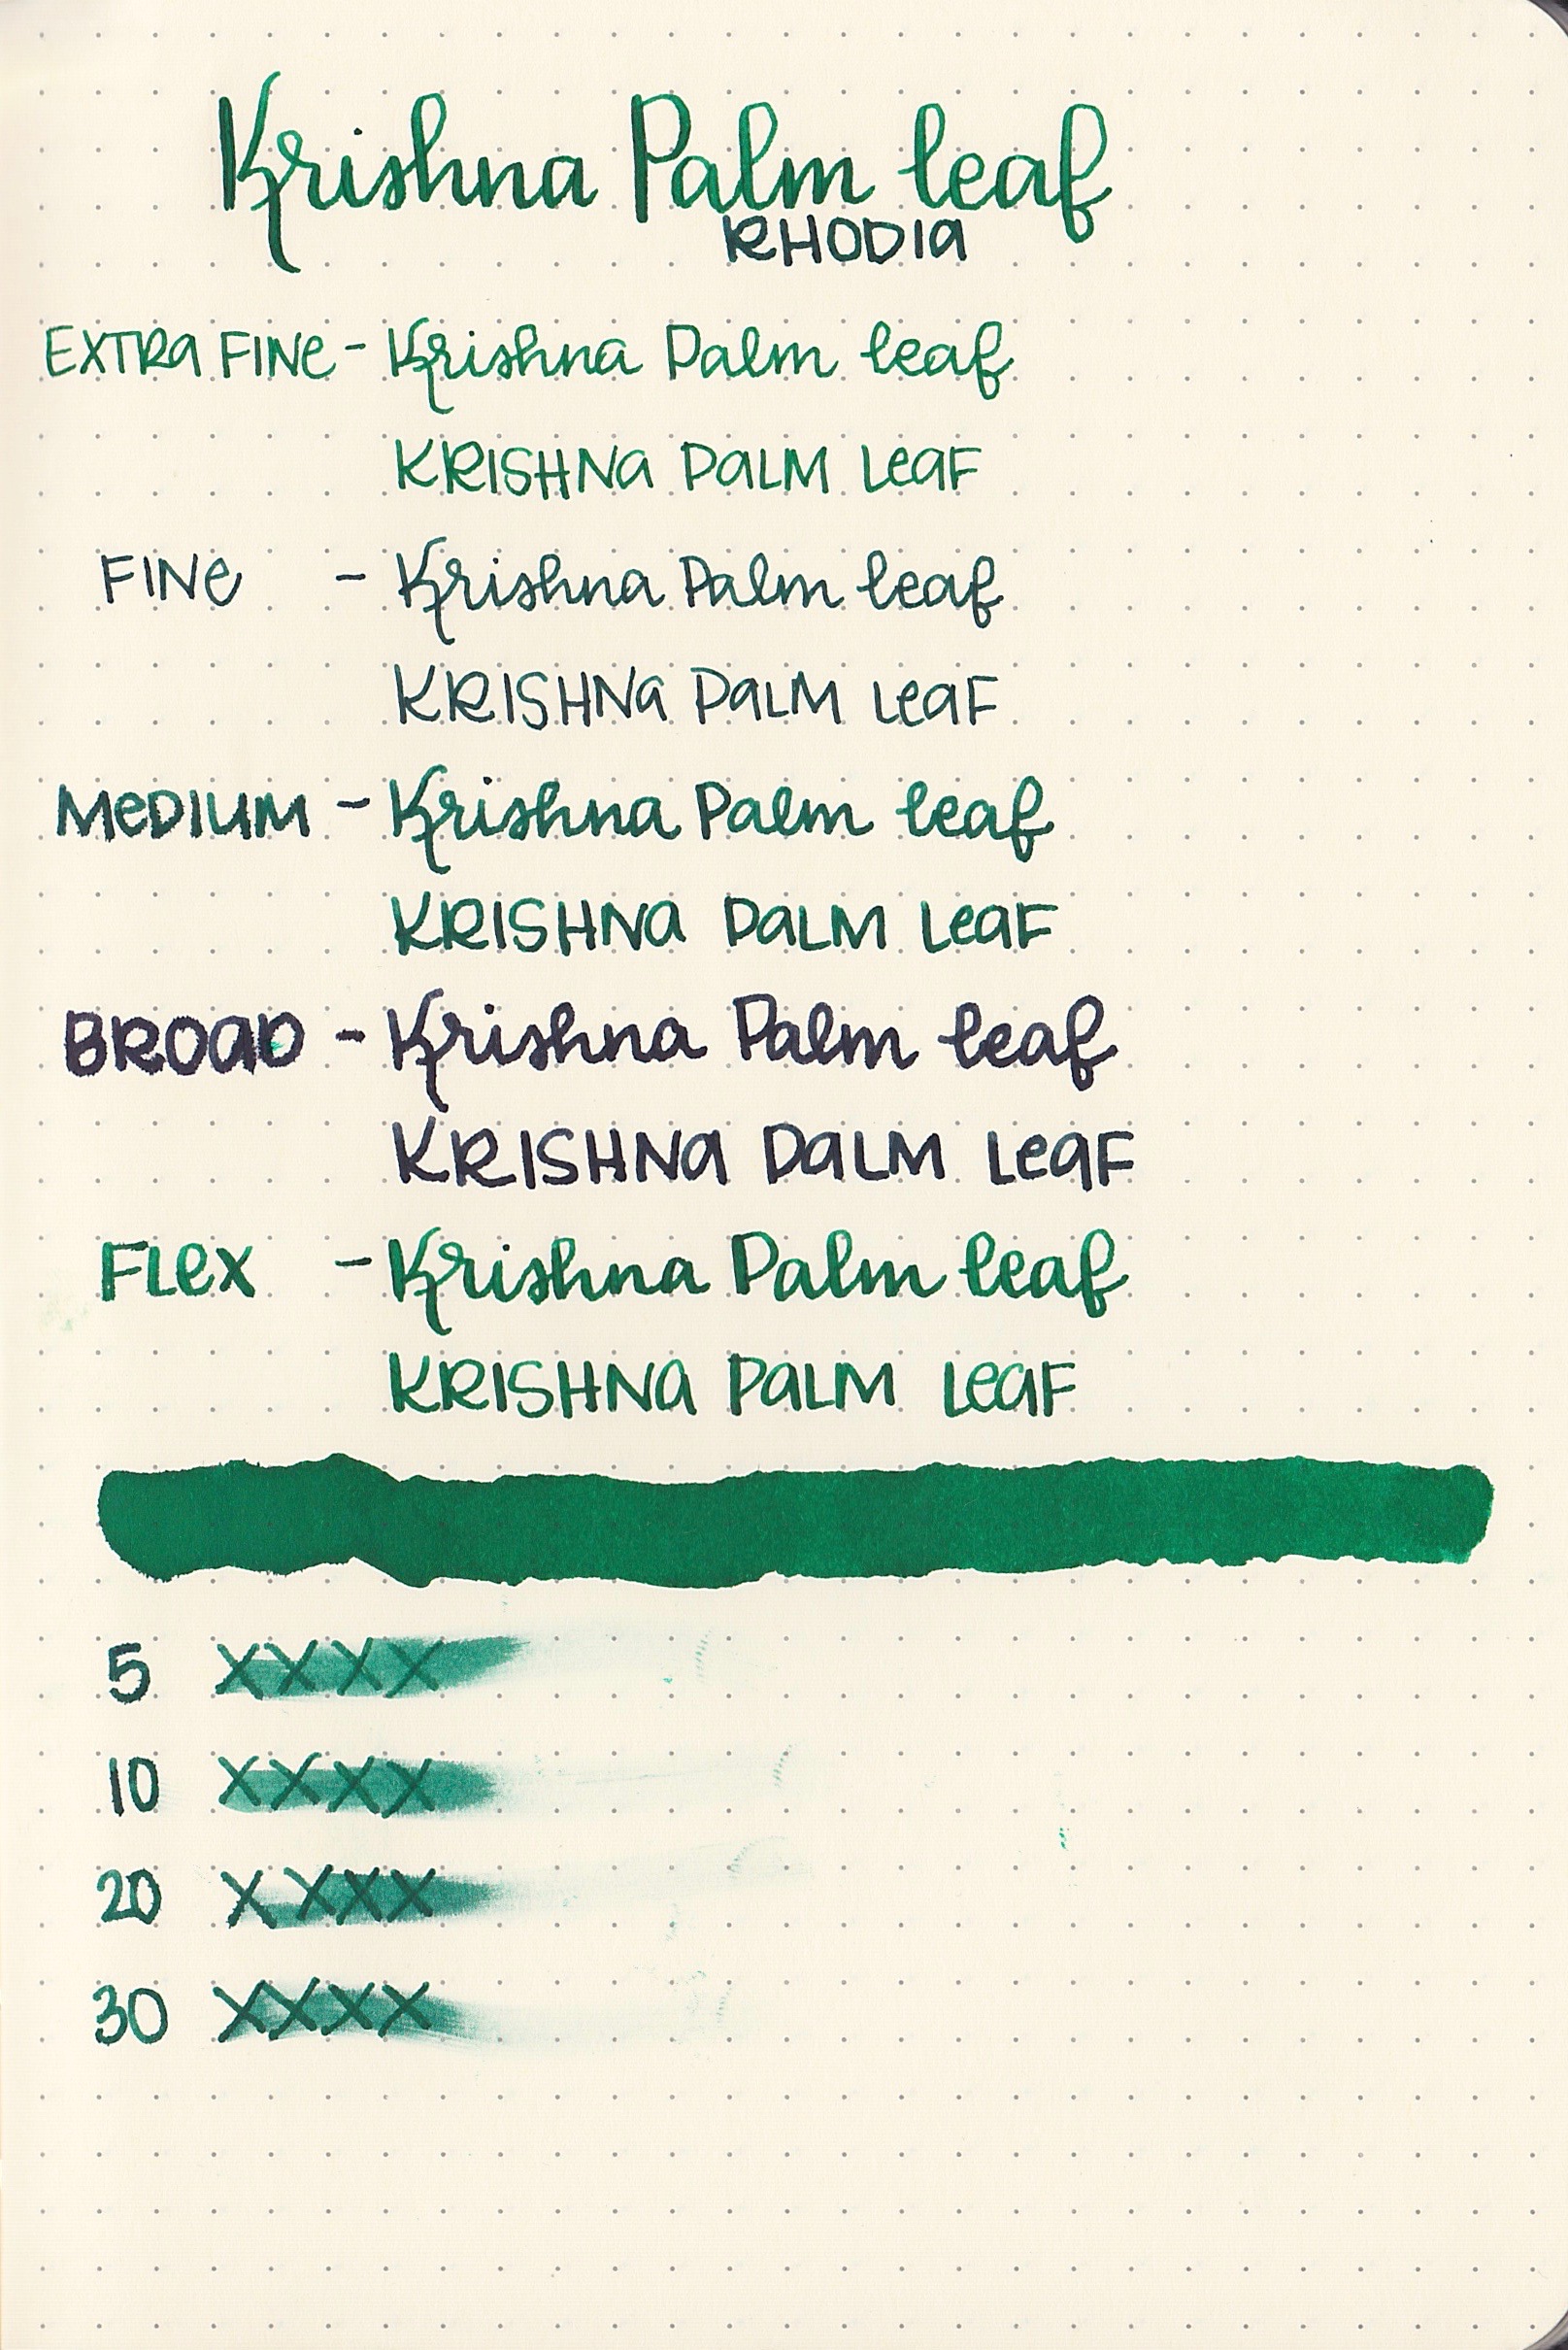 Krishna Palm leaf
RHODIA
EXTRA FINE - Krishna Palm leaf
KRISHNA PALM LEAF
FINE - Krishna Palm leaf
KRISHNA PALM LEAF
MEDIUM - Krishna Palm leaf
KRISHNA PALM LEAF
BROAD - Krishna Palm leaf
KRISHNA PALM LEAF
FLEX - Krishna Palm leaf
KRISHNA PALM LEAF
5 XXXX
10 XXXX
20 XXXX
30 XXXX